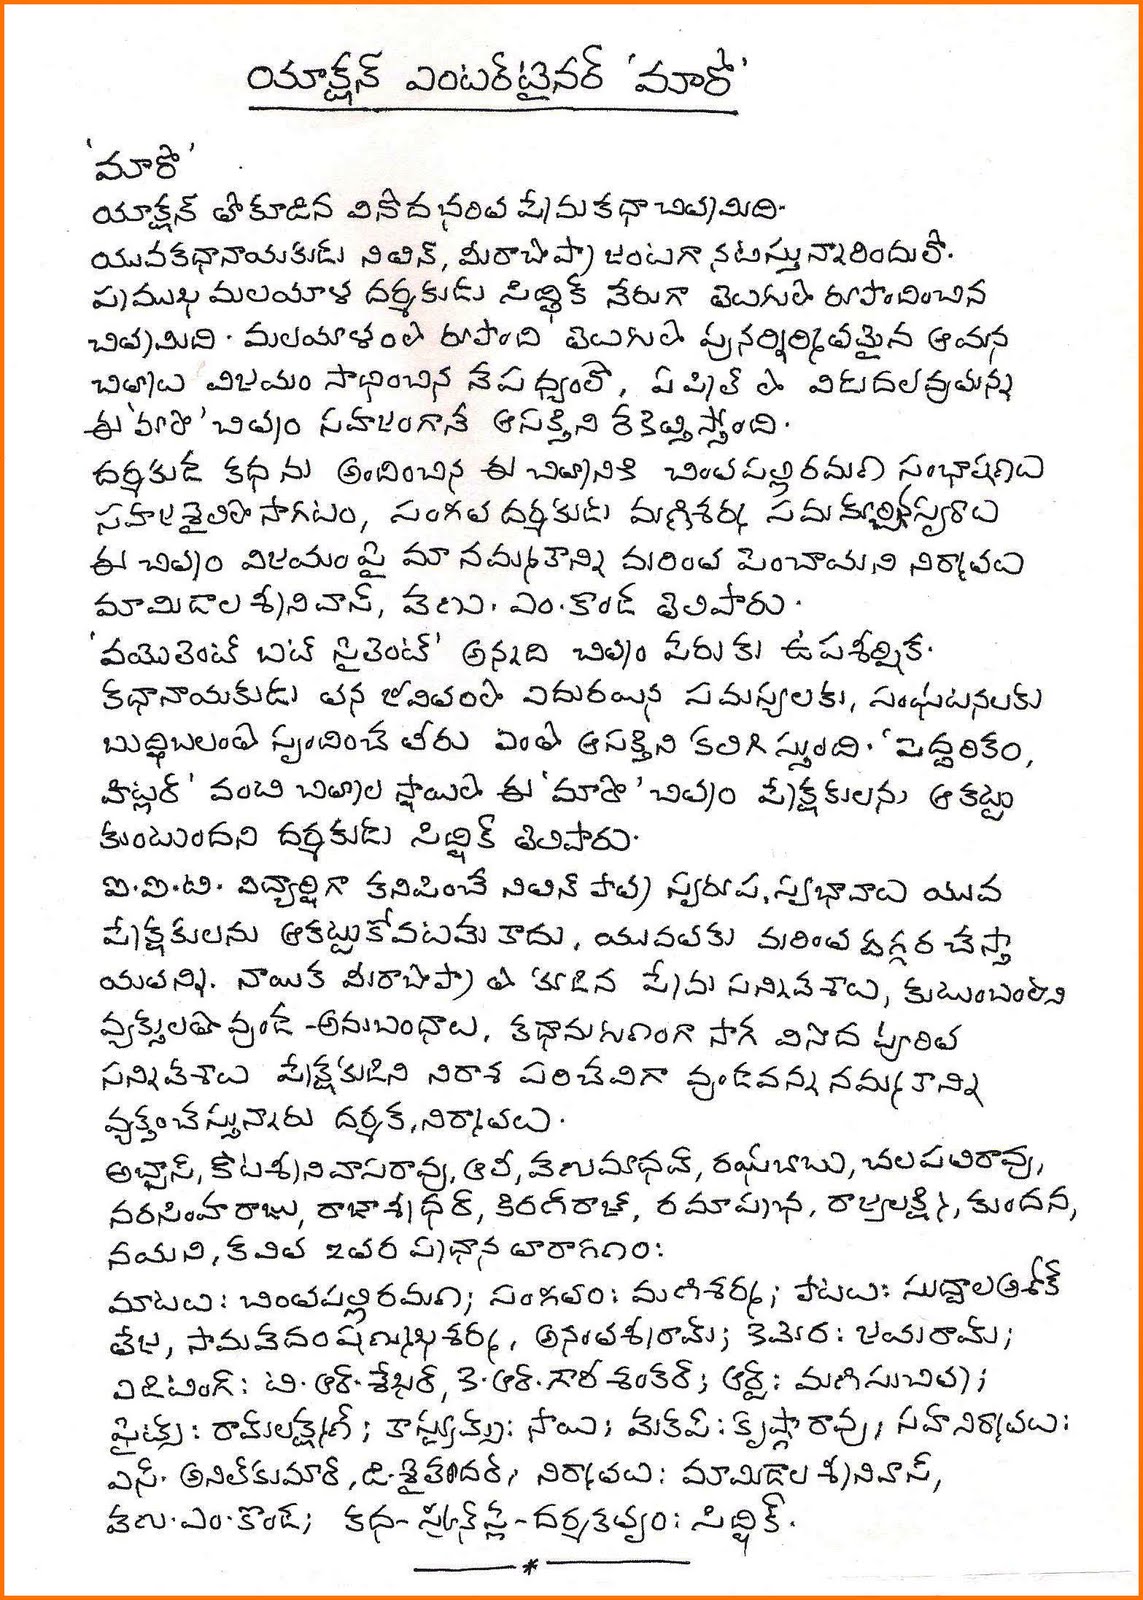 యాక్షన్ ఎంటర్‌టైనర్ 'మారో'
'మారో'
యాక్షన్ తోకూడిన వినోదభరిత ప్రేమకథా చిత్రమిది.
యువకథానాయకుడు నితిన్, మీరాచోప్రా జంటగా నటిస్తున్నారిందులో.
ప్రముఖ మలయాళ దర్శకుడు సిద్ధిక్ నేరుగా తెలుగులో రూపొందించిన
చిత్రమిది. మలయాళంలో రూపొంది తెలుగులో పునర్నిర్మితమైన ఆయన
చిత్రాలు విజయం సాధించిన నేపధ్యంలో, ఏప్రిల్ లో విడుదలవుతున్న
ఈ 'మారో' చిత్రం సహజంగానే ఆసక్తిని రేకెత్తిస్తోంది.
దర్శకుడే కథను అందించిన ఈ చిత్రానికి చింతపల్లిరమణ సంభాషణలు
సహజశైలిలో సాగటం, సంగీత దర్శకుడు మణిశర్మ సమకూర్చిన స్వరాలు
ఈ చిత్రం విజయంపై మా నమ్మకాన్ని మరింత పెంచాయని నిర్మాతలు
మామిడాల శ్రీనివాస్, వేణు.ఎం.కొండ తెలిపారు.
'వయొలెంట్ బట్ సైలెంట్' అన్నది చిత్రం పేరుకు ఉపశీర్షిక.
కథానాయకుడు తన జీవితంలో ఎదురయిన సమస్యలకు, సంఘటనలకు
బుద్ధిబలంతో స్పందించే తీరు ఎంతో ఆసక్తిని కలిగిస్తుంది. 'పెద్దరికం,
హిట్లర్' వంటి చిత్రాల స్థాయిలో ఈ 'మారో' చిత్రం ప్రేక్షకులను ఆకట్టు
కుంటుందని దర్శకుడు సిద్ధిక్ తెలిపారు.
ఐ.ఐ.టి. విద్యార్థిగా కనిపించే నితిన్ పాత్ర స్వరూప, స్వభావాలు యువ
ప్రేక్షకులను ఆకట్టుకోవటమే కాదు, యువతకు మరింత దగ్గర చేస్తా
యతన్ని. నాయిక మీరాచోప్రా తో కూడిన ప్రేమ సన్నివేశాలు, కుటుంబంలోని
వ్యక్తులతో వుండే అనుబంధాలు, కథానుగుణంగా సాగే వినోద పూరిత
సన్నివేశాలు ప్రేక్షకుడిని నిరాశ పరిచేవిగా వుండవన్న నమ్మకాన్ని
వ్యక్తంచేస్తున్నారు దర్శక, నిర్మాతలు.
అబ్బాస్, కోటశ్రీనివాసరావు, ఆలీ, వేణుమాధవ్, రఘుబాబు, చలపతిరావు,
నరసింహరాజు, రాజాశ్రీధర్, కిరణ్‌రాజ్, రమాప్రభ, రాజ్యలక్ష్మి, కుందన,
నయని, కవిత ఇతర ప్రధాన తారాగణం:
మాటలు: చింతపల్లిరమణ; సంగీతం: మణిశర్మ; పాటలు: సుద్దాలఅశోక్
తేజ, సామవేదంషణ్ముఖశర్మ, అనంతశ్రీరామ్; కెమేరా: జయరామ్;
ఎడిటింగ్: టి.ఆర్.శేఖర్, కె.ఆర్.గౌరీశంకర్; ఆర్ట్: మణిసుచిత్ర;
ఫైట్స్: రామ్‌లక్ష్మణ్; కాస్ట్యూమ్స్: సాయి; మేకప్: కృష్ణారావు, సహనిర్మాతలు:
ఎస్. అనిల్‌కుమార్, డి.శైలేందర్, నిర్మాతలు: మామిడాల శ్రీనివాస్,
వేణు.ఎం.కొండ; కథ-స్క్రీన్‌ప్లే-దర్శకత్వం: సిద్ధిక్.